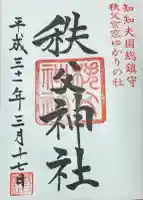 知知夫国総鎮守
秩父宮家ゆかりの社
秩父神社
平成三十一年三月十七日